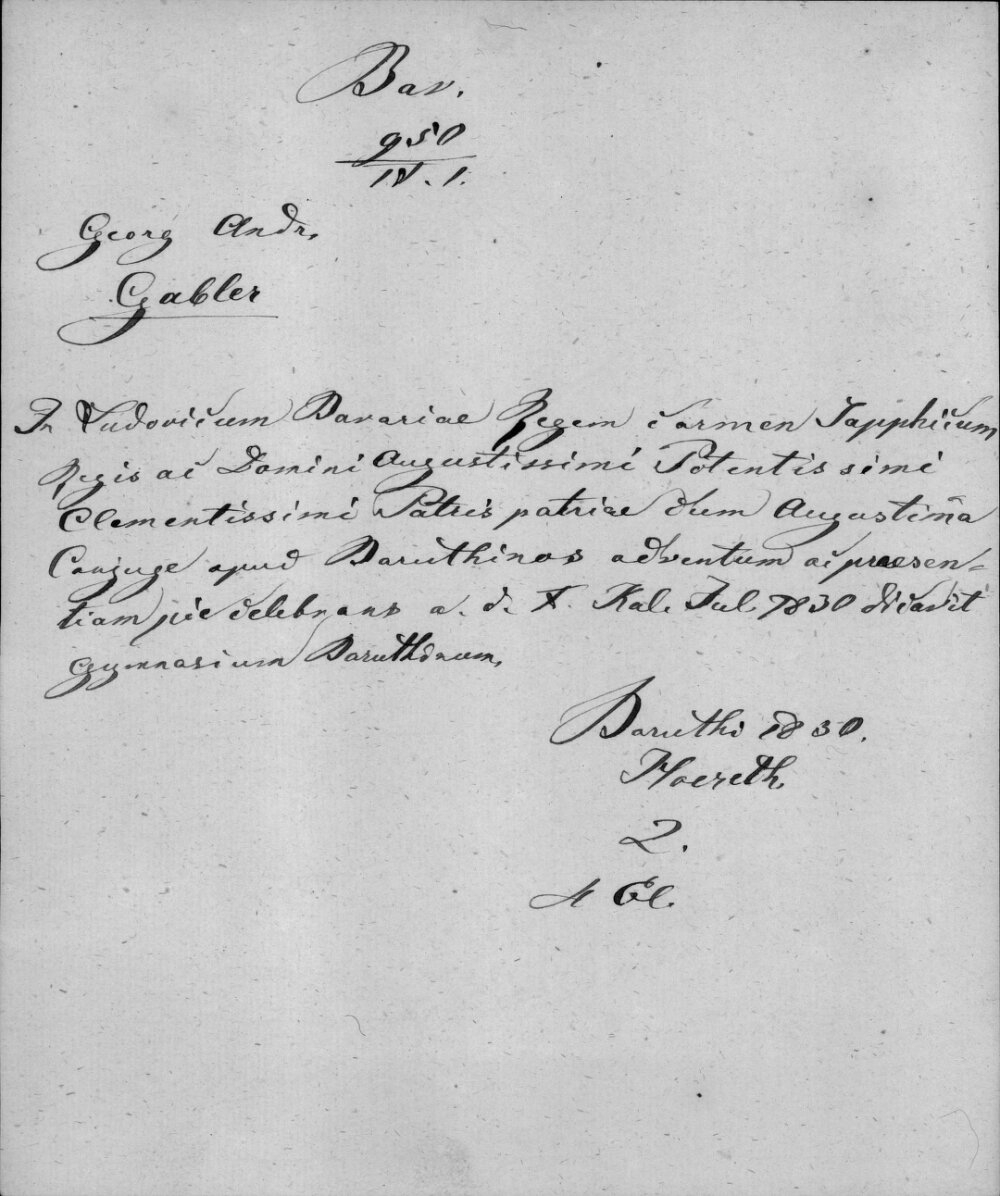 Bav.
950
IV. 1.
Georg Andr.
Gabler
In Ludovicum Bavariae Regem Carmen Sapphicum
Regis ac Domini Augustissimi Potentissimi
Clementissimi Patris patriae cum Augustiña
Conjuge apud Baruthinos adventum ac praesen-
tiam pie celebrans a. d. X. Kal. Jul. 1830 dicavit
Gymnasium Baruthinum.
Baruthi 1830.
Hoereth.
2.
4 Bl.